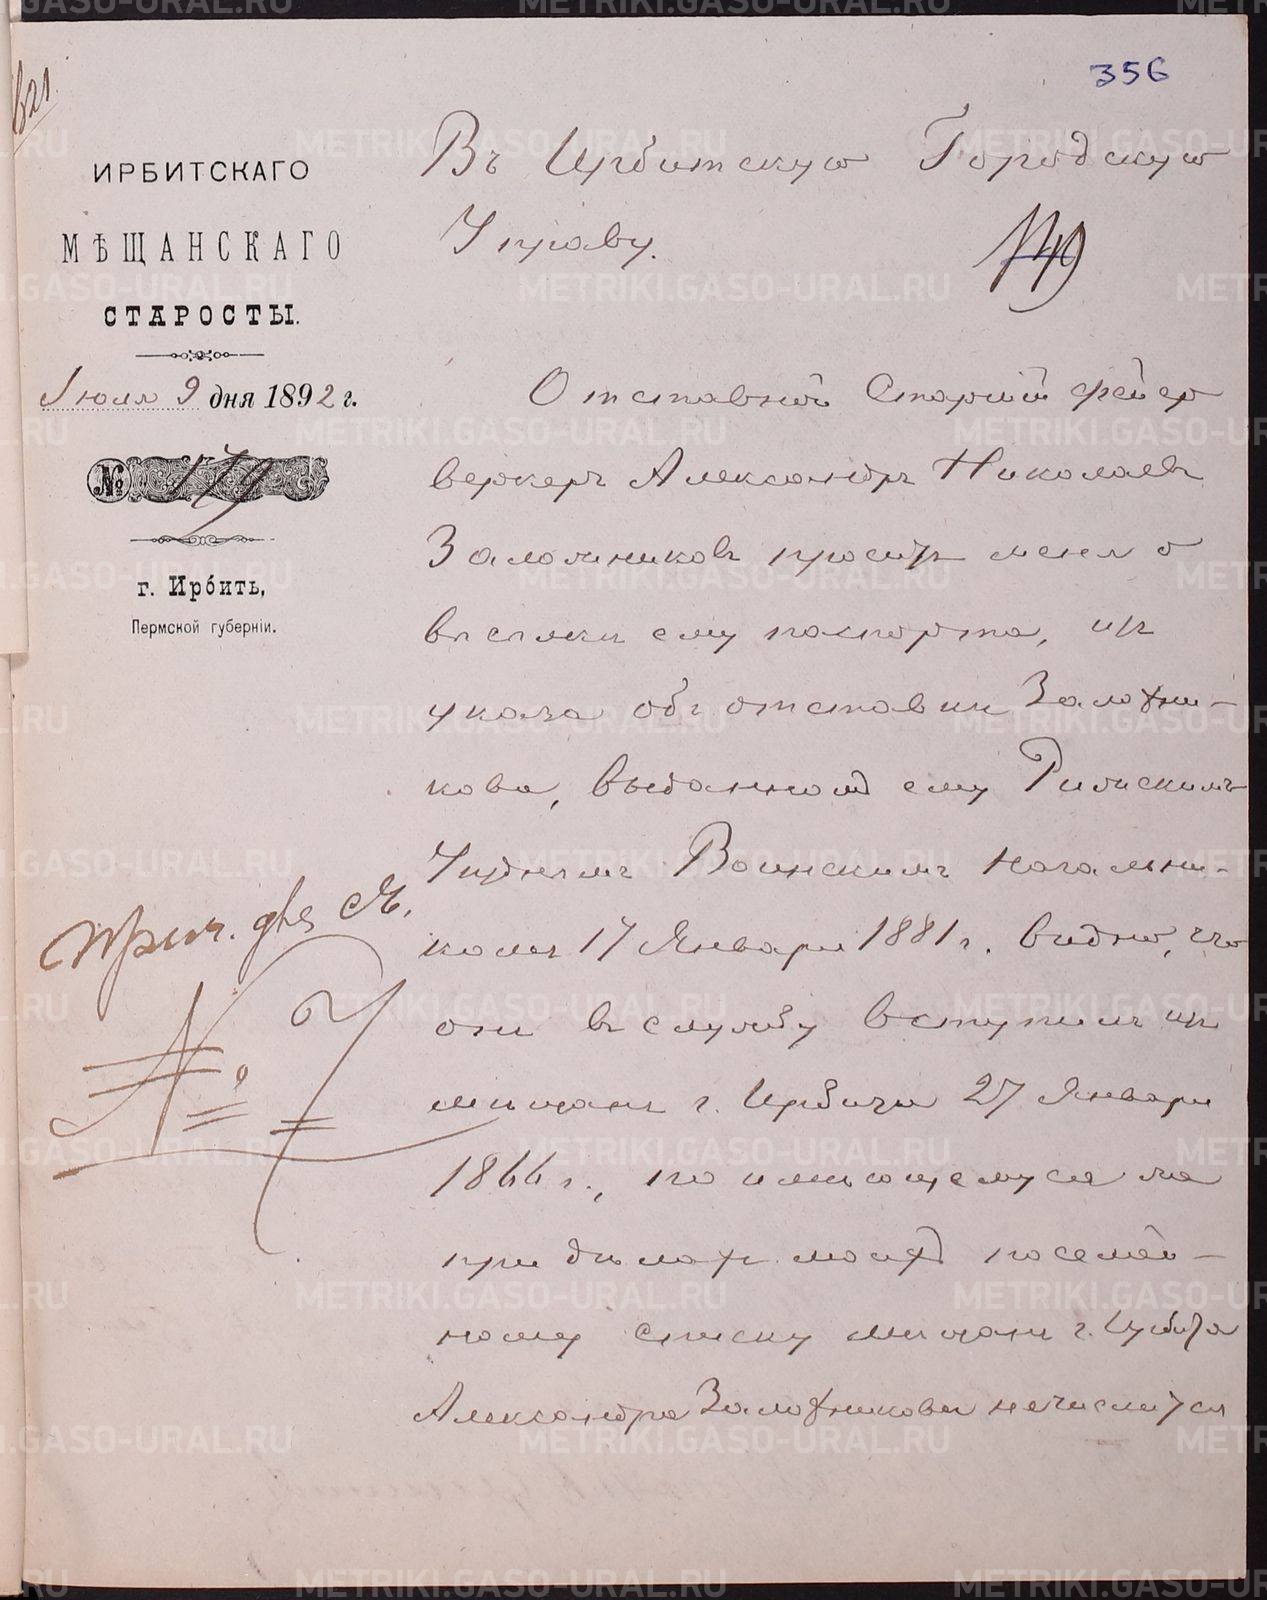 356
ИРБИТСКАГО
МѢЩАНСКАГО
СТАРОСТЫ.
Іюля 9 дня 1892 г.
№ 179
г. Ирбить,
Пермской губерніи.
Въ Ирбитскую Городскую
Управу.
Отставной Старшій фейер
веркеръ Александръ Николаевъ
Заложниковъ проситъ меня о
высылки ему паспорта, изъ
указа объ отставки Заложни-
кова, выданного ему Рижскимъ
Уѣзднымъ Воинскимъ Начальни-
комъ 17 Января 1881 г. видно, что
онъ въ службу вступилъ изъ
мѣщанъ г. Ирбита 27 Января
1866 г., по имѣющемуся же
при дѣлахъ моихъ посемей-
ному списку мѣщанъ г. Ирбита
Александра Заложникова не числится
прич. двѣ
METRIKI.GASO-URAL.RU